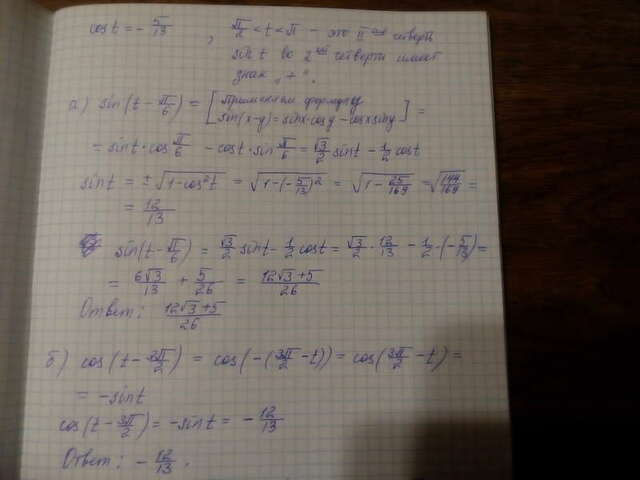 cos t = - 5/13 , π/2 < t < π - это II ой четверть
sin t во 2ой четверти имеет
знак "+".
а) sin(t - π/6) = [применяем формулу
sin(x-y) = sinx·cosy - cosx siny] =
= sint · cos π/6 - cost · sin π/6 = √3/2 sint - 1/2 cost
sint = ± √(1-cos²t) = √(1-(-5/13)²) = √(1 - 25/169) = √(144/169) =
= 12/13
sin(t - π/6) = √3/2 sint - 1/2 cost = √3/2 · 12/13 - 1/2 · (-5/13) =
= 6√3/13 + 5/26 = 12√3+5/26
Ответ: 12√3+5/26
б) cos(t - 3π/2) = cos(-(3π/2 - t)) = cos(3π/2 - t) =
= -sint
cos(t - 3π/2) = -sint = - 12/13
Ответ: - 12/13.